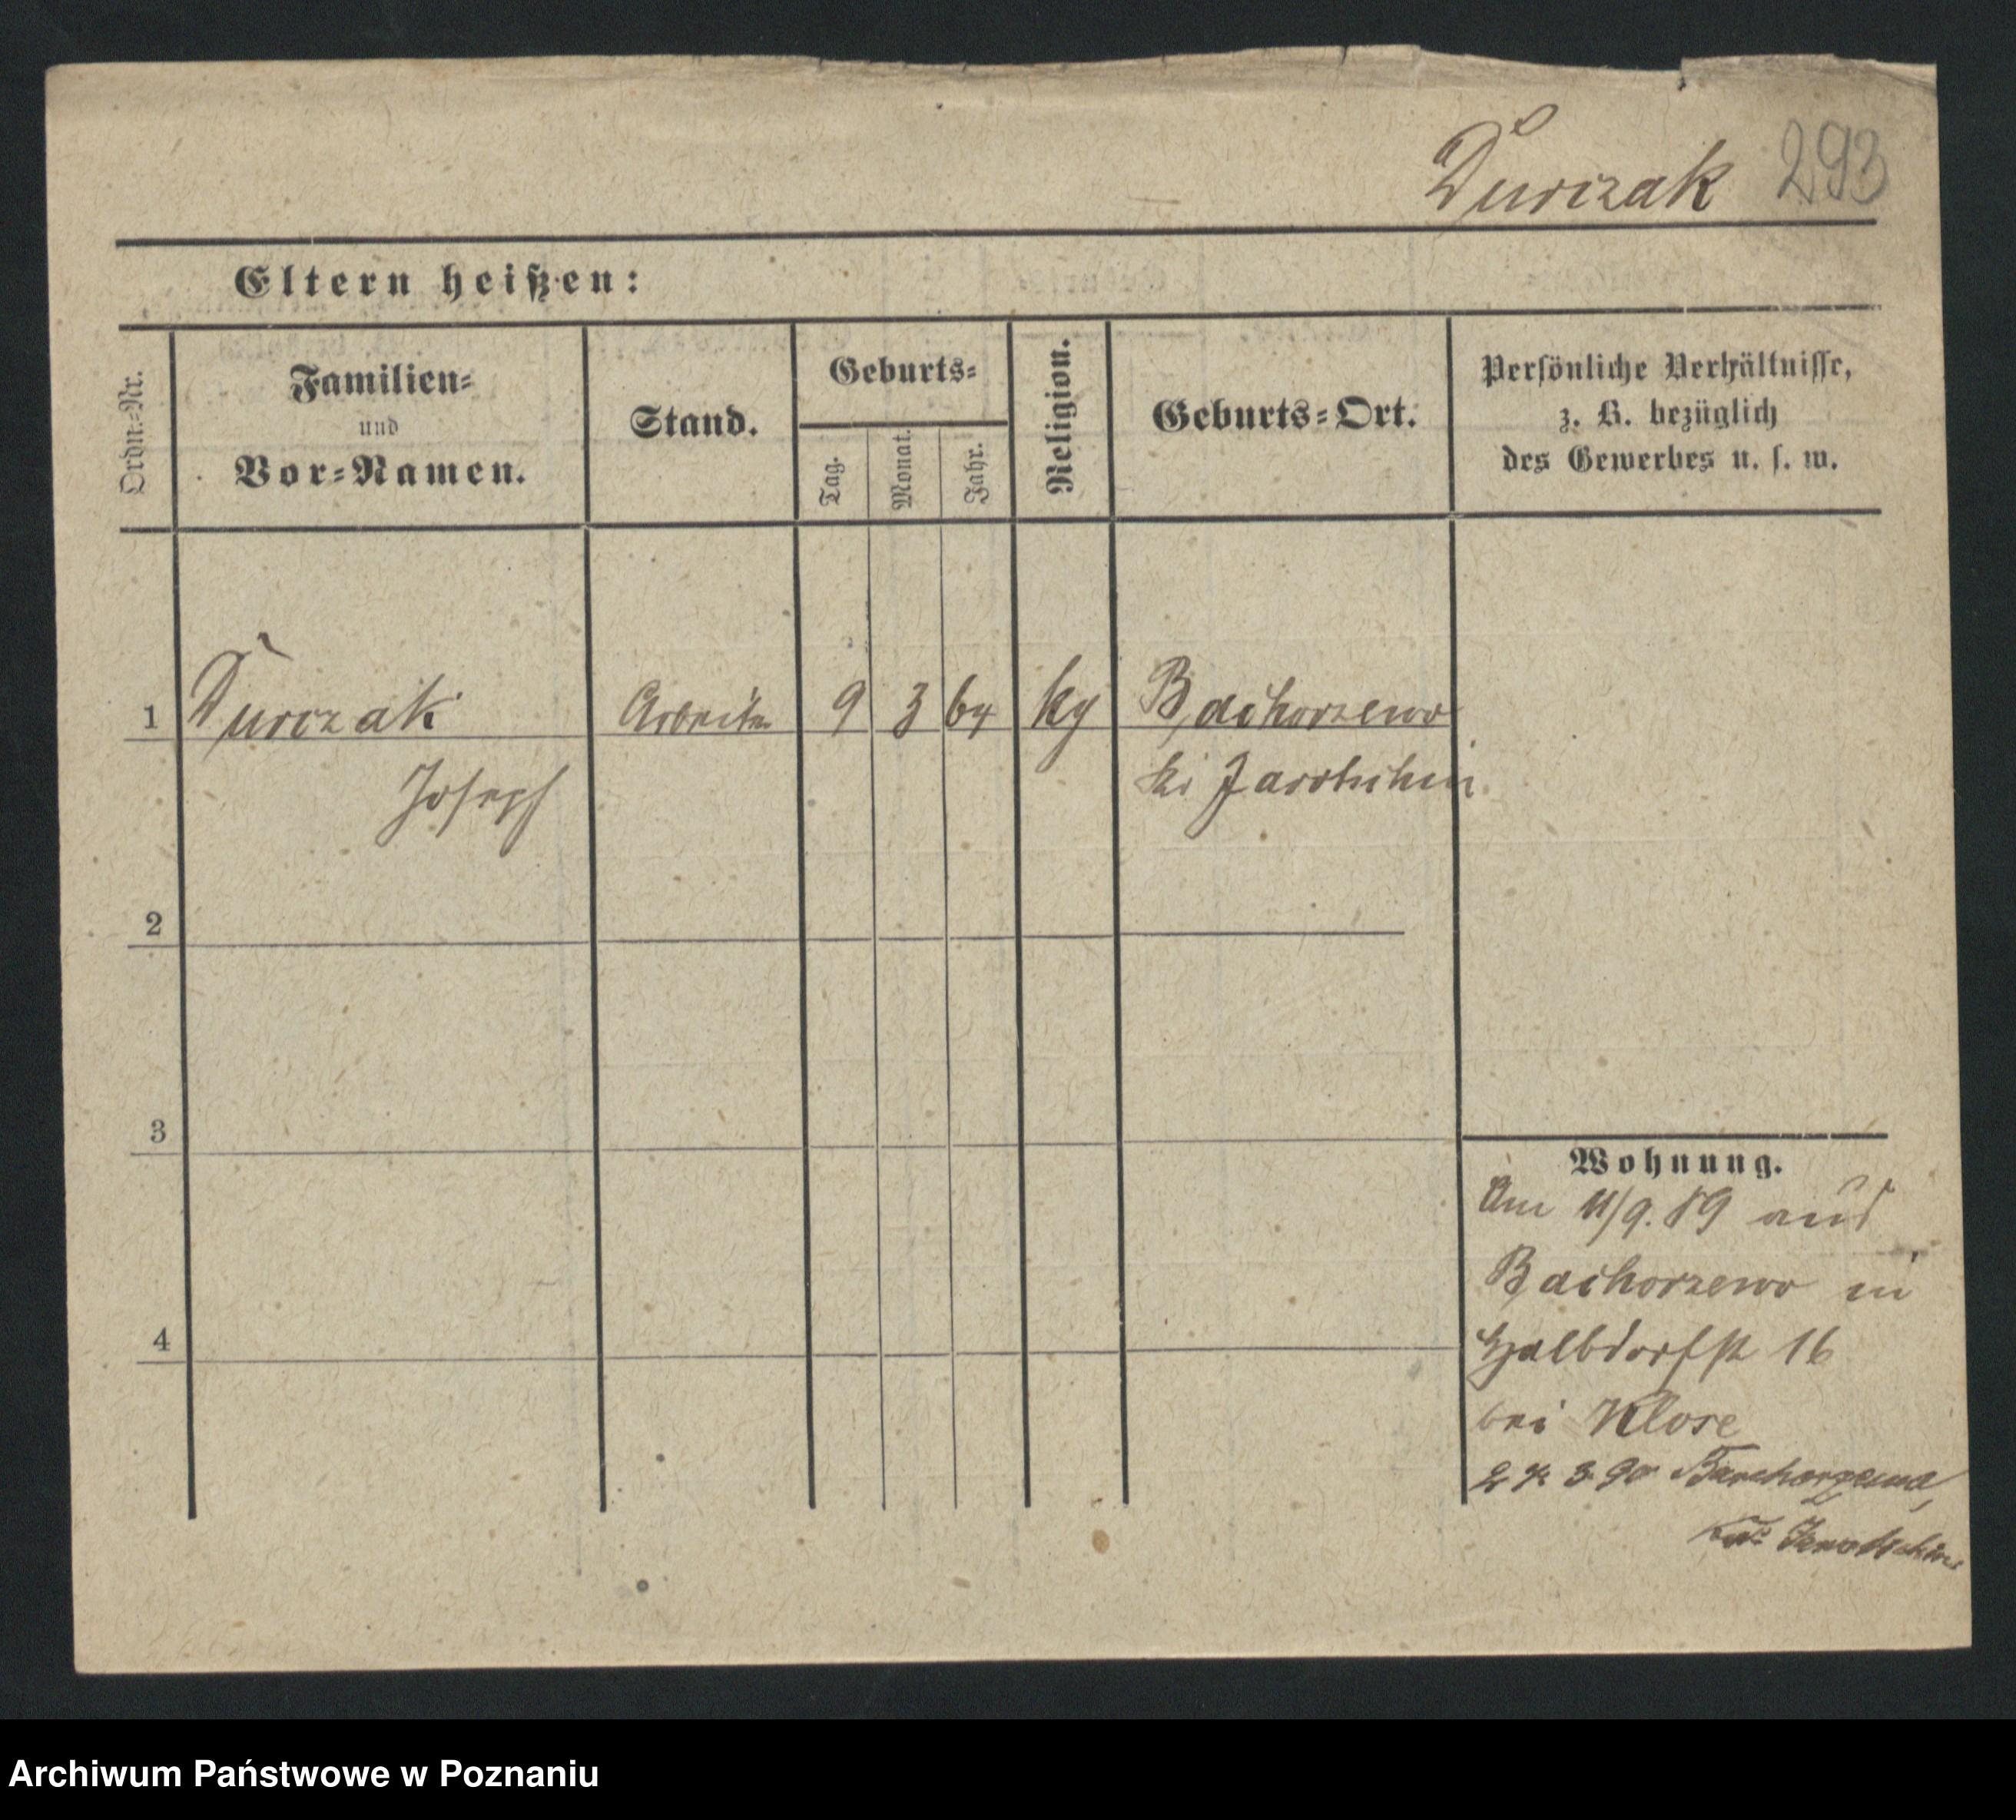 Durczak 293
Eltern heißen:
Ordn.=Nr.
Familien=
und
Vor=Namen.
Stand.
Geburts=
Tag.
Monat.
Jahr.
Religion.
Geburts=Ort.
Persönliche Verhältnisse,
z. B. bezüglich
des Gewerbes u. s. w.
1 Durczak Arbeiter 9 3 64 kg Bachorzewo
Joseph
Kr Jarotschin
2
3
4
Wohnung.
Am 11/9. 89 aus
Bachorzewo in
Halbdorfstr 16
bei Klose
3 90 Barchorzewo,
Jarotschin
Archiwum Państwowe w Poznaniu